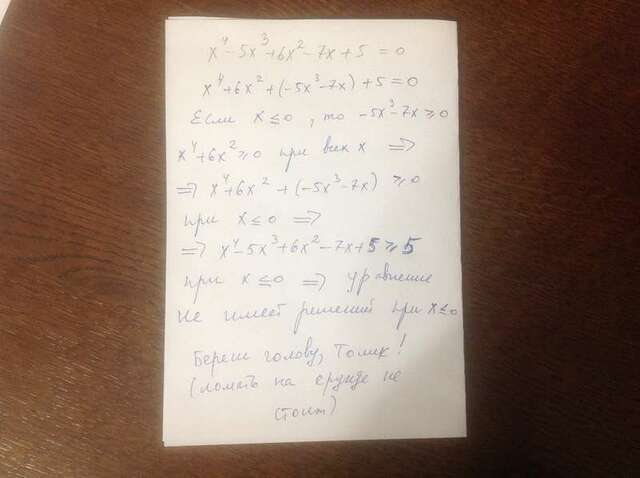 x⁴-5x³+6x²-7x+5=0
x⁴+6x²+(-5x³-7x)+5=0
Если x≤0, то -5x³-7x≥0
x⁴+6x²≥0 при всех x ⇒
⇒ x⁴+6x²+(-5x³-7x)≥0
при x≤0 ⇒
⇒ x⁴-5x³+6x²-7x+5≥5
при x≤0 ⇒ уравнение
не имеет решений при x≤0
Береги голову, Толик!
(ломать на ерунде не
стоит)